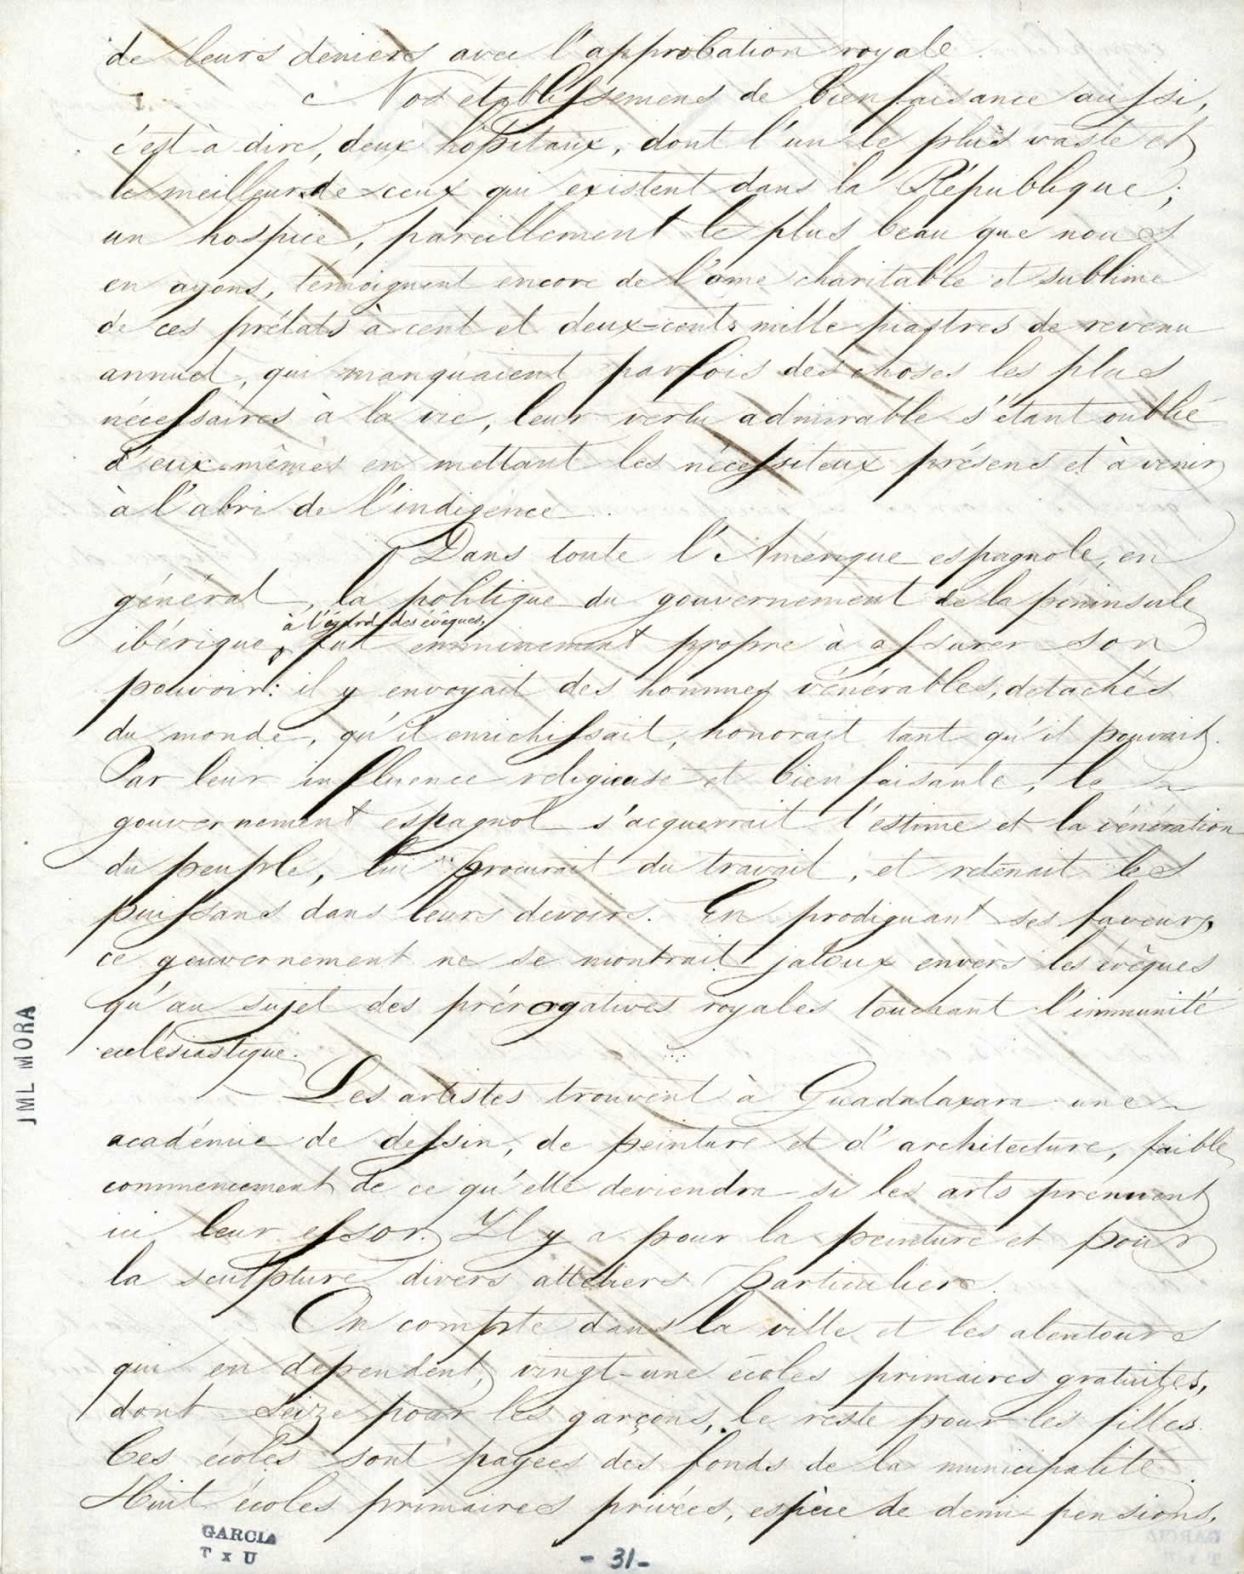 de leurs deniers avec l'approbation royale.
Nos etablissemens de bienfaisance aussi,
c'est à dire, deux hôpitaux, dont l'un le plus vaste et
le meilleur de ceux qui existent dans la République;
un hospice, pareillement le plus beau que nous
en ayons, témoignent encore de l'ame charitable et sublime
de ces prélats à cent et deux-cents mille piastres de revenu
annuel, qui manquaient parfois des choses les plus
nécessaires à la vie, leur vertu admirable s'étant oublié
d'eux-mêmes en mettant les nécessiteux présens et à venir
à l'abri de l'indigence.
Dans toute l'Amérique espagnole, en
général, la politique du gouvernement de la péninsule
à l'égard des évêques,
ibérique, fut emminement propre à assurer son
pouvoir: il y envoyait des hommes vénérables, détachés
du monde, qu'il enrichissait, honorait tant qu'il pouvait.
Par leur influence religieuse et bienfaisante, le
gouvernement espagnol s'acquerrait l'estime et la vénération
du peuple, lui procurait du travail, et retenait les
puissans dans leurs devoirs. En prodiguant ses faveurs,
ce gouvernement ne se montrait jaloux envers les évêques
qu'au sujet des prérogatives royales touchant l'immunité
ecclésiastique.
Les artistes trouvent à Guadalaxara une
académie de dessin, de peinture et d'architecture, faible
commencement de ce qu'elle deviendra si les arts prennent
ici leur essor. Il y a pour la peinture et pour
la sculpture divers atteliers particuliers.
On compte dans la ville et les alentours
qui en dépendent, vingt-une écoles primaires gratuites,
dont seize pour les garçons, le reste pour les filles.
Ces écoles sont payées des fonds de la municipalité.
Huit écoles primaires privées, espèce de demi-pensions,
JML MORA
GARCIA
T x U
- 31 -